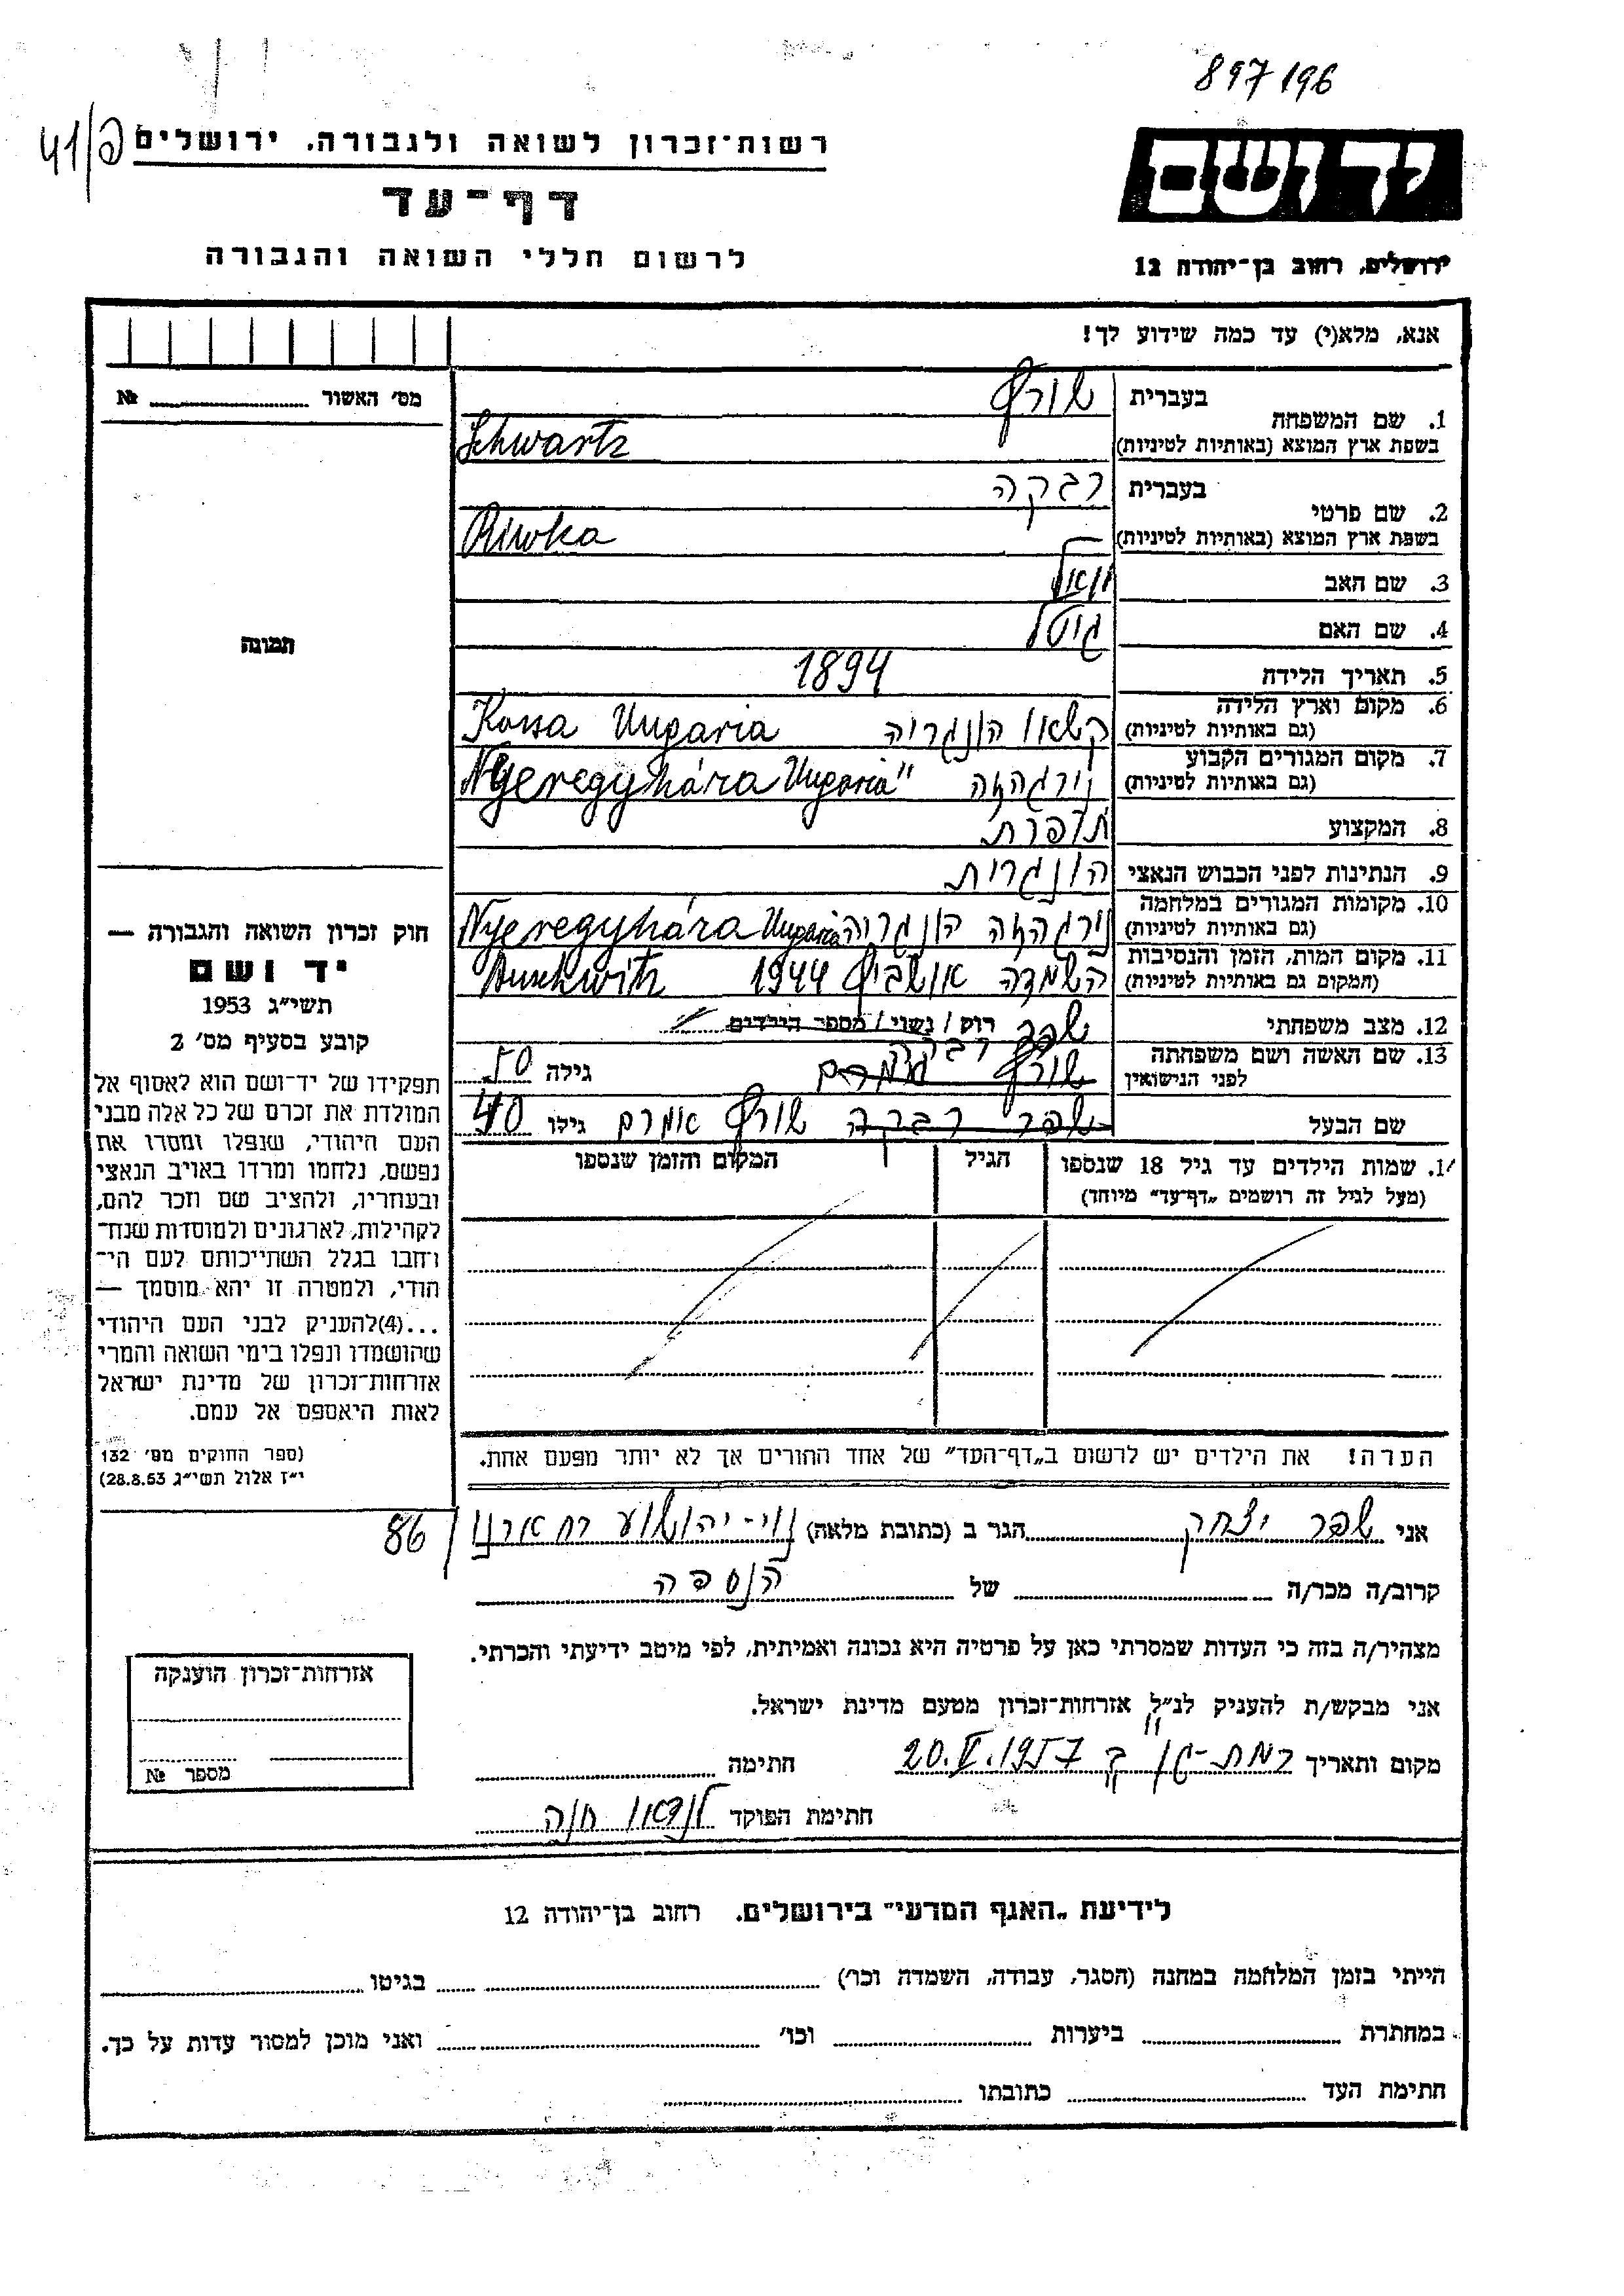 897196
41/פ
רשות־זכרון לשואה ולגבורה. ירושלים
דף־עד
לרשום חללי השואה והגבורה
יד ושם
ירושלים, רחוב בן־יהודה 12
אנא, מלא(י) עד כמה שידוע לך!
מס' האשור № 
1. שם המשפחה
בעברית שורץ
בשפת ארץ המוצא (באותיות לטיניות) Schwartz
2. שם פרטי
בעברית רבקה
בשפת ארץ המוצא (באותיות לטיניות) Riwka
3. שם האב
4. שם האם גיטל
5. תאריך הלידה 1894
6. מקום וארץ הלידה
(גם באותיות לטיניות) קשאו הונגריה Kossa Ungaria
7. מקום המגורים הקבוע
(גם באותיות לטיניות) נירגהזה Nyeregyháza Ungaria"
8. המקצוע תופרת
9. הנתינות לפני הכבוש הנאצי הונגרית
10. מקומות המגורים במלחמה
(גם באותיות לטיניות) נירגהזה הונגריה Nyeregyháza Ungaria
11. מקום המות, הזמן והנסיבות
(המקום גם באותיות לטיניות) השמדה אושביץ 1944 Auschwitz
12. מצב משפחתי רוק / נשוי / מספר הילדים
13. שם האשה ושם משפחתה
לפני הנישואין שפר רבקה שורץ גילה 50
שם הבעל שפר רבקה שורץ אמרם גילו 40
שמות הילדים עד גיל 18 שנספו
(מעל לגיל זה רושמים „דף־עד" מיוחד)
הגיל
המקום והזמן שנספו
הערה! את הילדים יש לרשום ב„דף־העד" של אחד ההורים אך לא יותר מפעם אחת.
תמונה
חוק זכרון השואה והגבורה —
יד ושם
תשי"ג 1953
קובע בסעיף מס' 2
תפקידו של יד־ושם הוא לאסוף אל
המולדת את זכרם של כל אלה מבני
העם היהודי, שנפלו ומסרו את
נפשם, נלחמו ומרדו באויב הנאצי
ובעוזריו, ולהציב שם וזכר להם,
לקהילות, לארגונים ולמוסדות שנח־
רבו בגלל השתייכותם לעם הי־
הודי, ולמטרה זו יהא מוסמך —
...(4)להעניק לבני העם היהודי
שהושמדו ונפלו בימי השואה והמרי
אזרחות־זכרון של מדינת ישראל
לאות היאספם אל עמם.
(ספר החוקים מס' 132
י"ז אלול תשי"ג 28.8.53)
אני שפר יצחק הגר ב (כתובת מלאה) נוי-יהושוע רח 86
קרוב/ה מכר/ה של הנספה
מצהיר/ה בזה כי העדות שמסרתי כאן על פרטיה היא נכונה ואמיתית, לפי מיטב ידיעתי והכרתי.
אני מבקש/ת להעניק לנ"ל אזרחות־זכרון מטעם מדינת ישראל.
מקום ותאריך רמת-גן ב 20.V.1957 חתימה
חתימת הפוקד לנדאו חנה
אזרחות־זכרון הוענקה
מספר №
לידיעת „האגף המדעי" בירושלים. רחוב בן־יהודה 12
הייתי בזמן המלחמה במחנה (הסגר, עבודה, השמדה וכו') בגיטו
במחתרת ביערות וכו' ואני מוכן למסור עדות על כך.
חתימת העד כתובתו